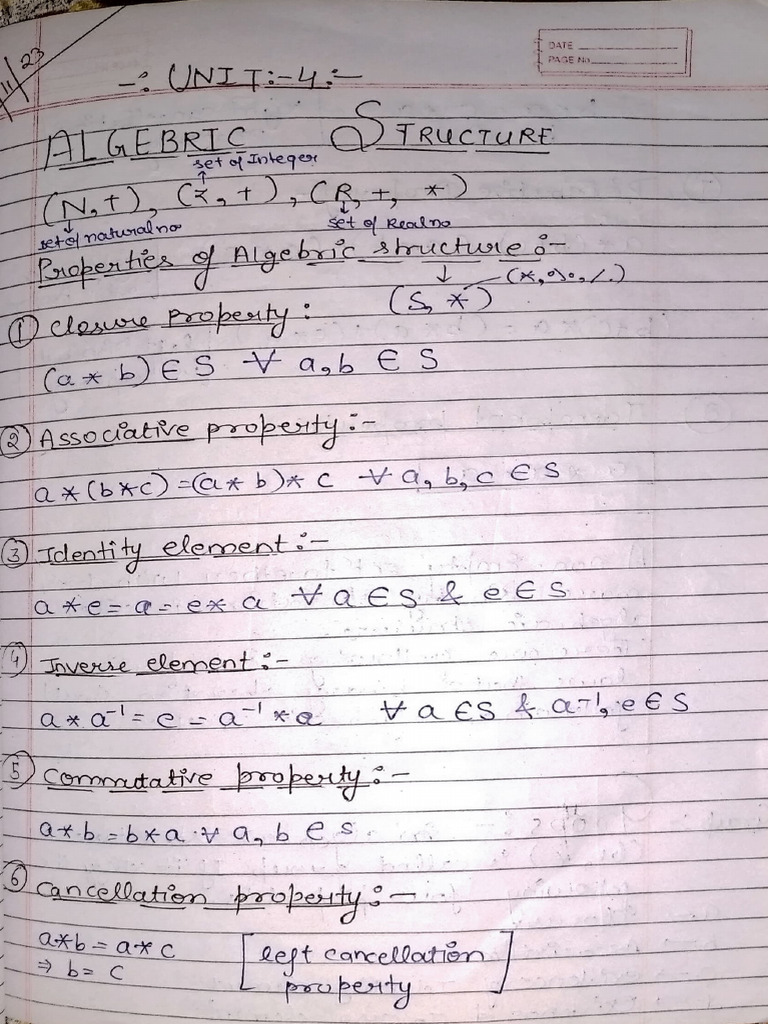 11/23
DATE
PAGE No.
-: UNIT:-4:-
ALGEBRIC STRUCTURE
set of Integer
(N,+), (Z,+), (R,+, *)
set of natural no
set of Real no
Properties of Algebric structure :-
(S, *)
① Closure property :
(a * b) ∈ S ∀ a,b ∈ S
② Associative property :-
a * (b * c) = (a * b) * c ∀ a, b, c ∈ S
③ Identity element :-
a * e = a = e * a ∀ a ∈ S & e ∈ S
④ Inverse element :-
a * a⁻¹ = e = a⁻¹ * a ∀ a ∈ S & a⁻¹, e ∈ S
⑤ Commutative property :-
a * b = b * a ∀ a, b ∈ S
⑥ Cancellation property :-
a * b = a * c [left cancellation
⇒ b = c property]